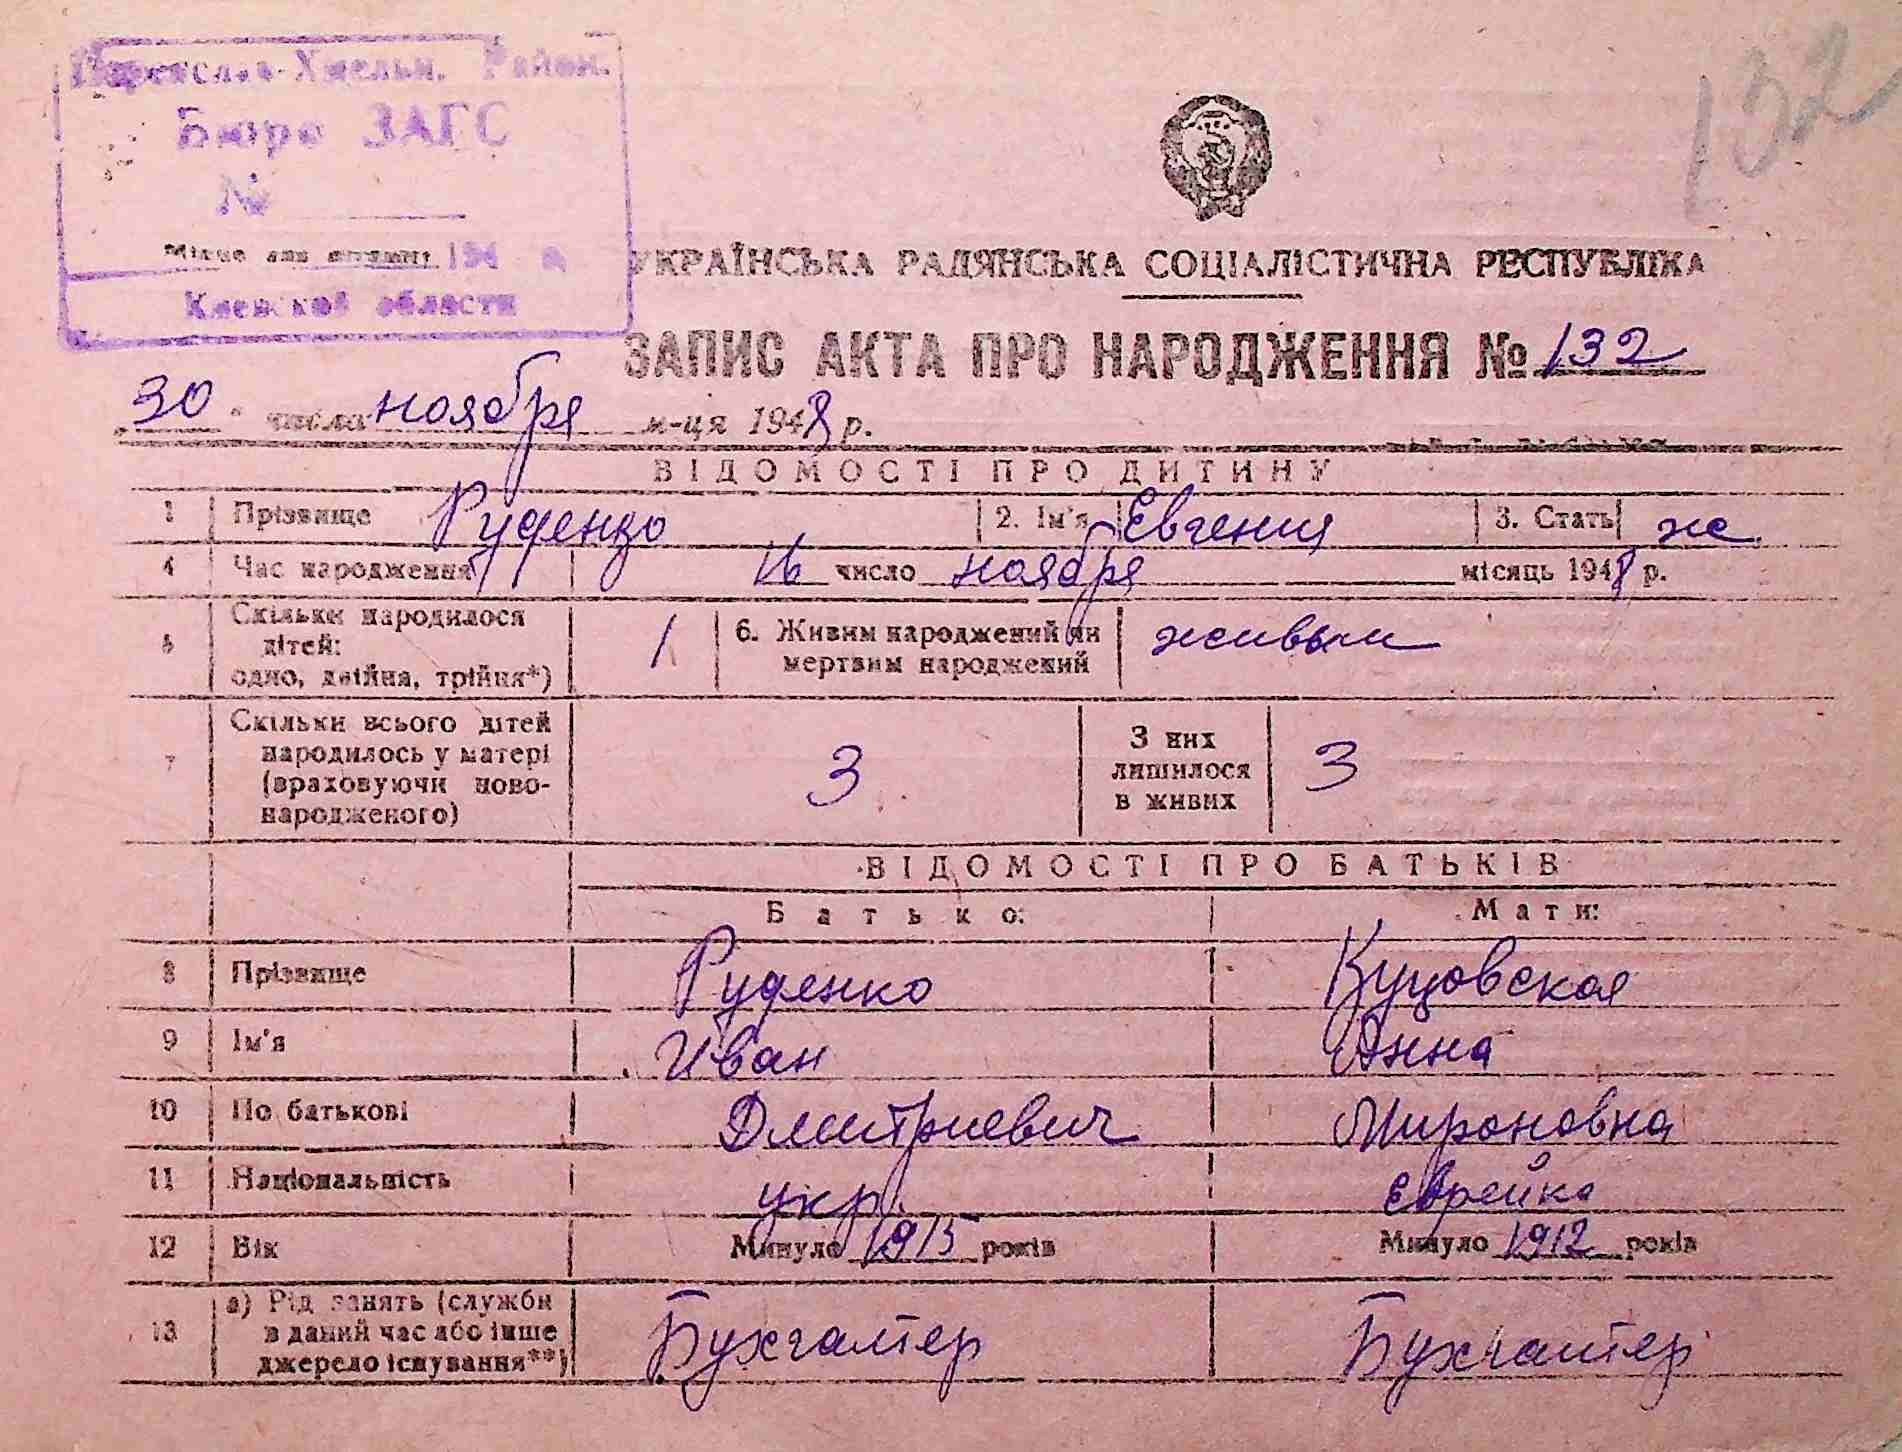 132
Переяслав-Хмельн. Район.
Бюро ЗАГС
№
194
Киевской области
УКРАЇНСЬКА РАДЯНСЬКА СОЦІАЛІСТИЧНА РЕСПУБЛІКА
ЗАПИС АКТА ПРО НАРОДЖЕННЯ № 132
„30" числа ноября м-ця 1948 р.
ВІДОМОСТІ ПРО ДИТИНУ
1 Прізвище Руденко 2. Ім'я Евгения 3. Стать ж.
4 Час народження 16 число ноября місяць 1948 р.
5 Скільки народилося
дітей:
одно, двійня, трійня*) 1 6. Живим народжений чи
мертвим народжений живым
7 Скільки всього дітей
народилось у матері
(враховуючи ново-
народженого) 3 З них
лишилося
в живих 3
ВІДОМОСТІ ПРО БАТЬКІВ
Батько: Мати:
8 Прізвище Руденко Куцовская
9 Ім'я Иван Анна
10 По батькові Дмитриевич Мироновна
11 Національність укр. Еврейка
12 Вік Минуло 1915 років Минуло 1912 років
13 а) Рід занять (служби
в даний час або інше
джерело існування**) Бухгалтер Бухгалтер